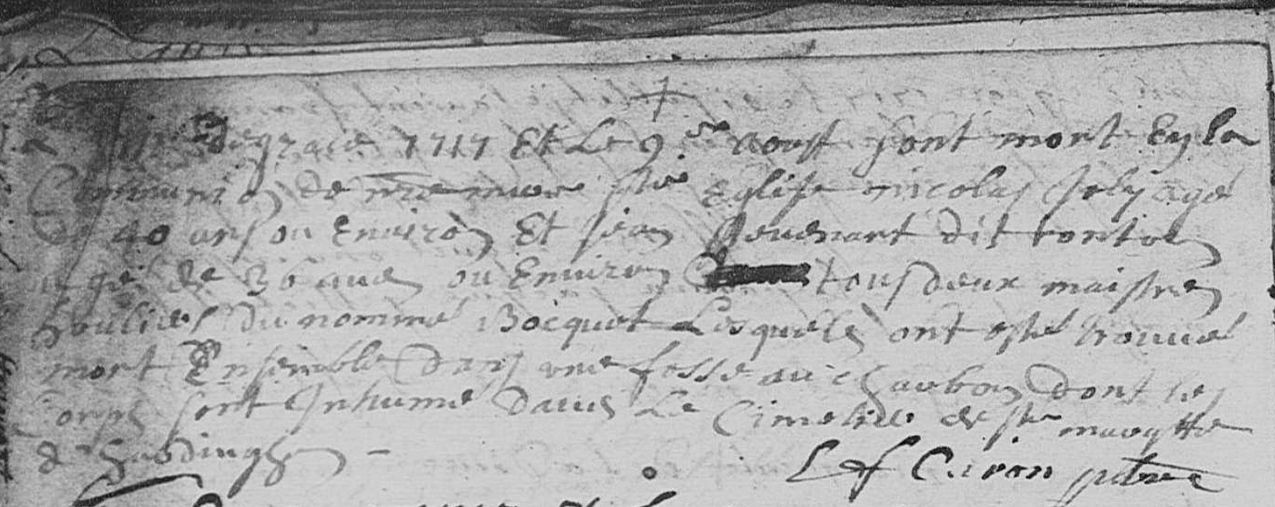 de grace 1717 Et Le 9.me aoust sont mort En la
Communion de nre mere ste Eglise nicolas Joly agé
de 40 ans ou Environ Et jean dit tonton
agé de 36 ans ou Environ tous deux maistre
houlier du nommé Bocquet Lesquels ont esté trouvé
mort Ensemble dans une fosse au charbon dont les
Corps sont Inhumé dans Le Cimetier de ste margtte
d'hardinghen
Lef Caron ptre